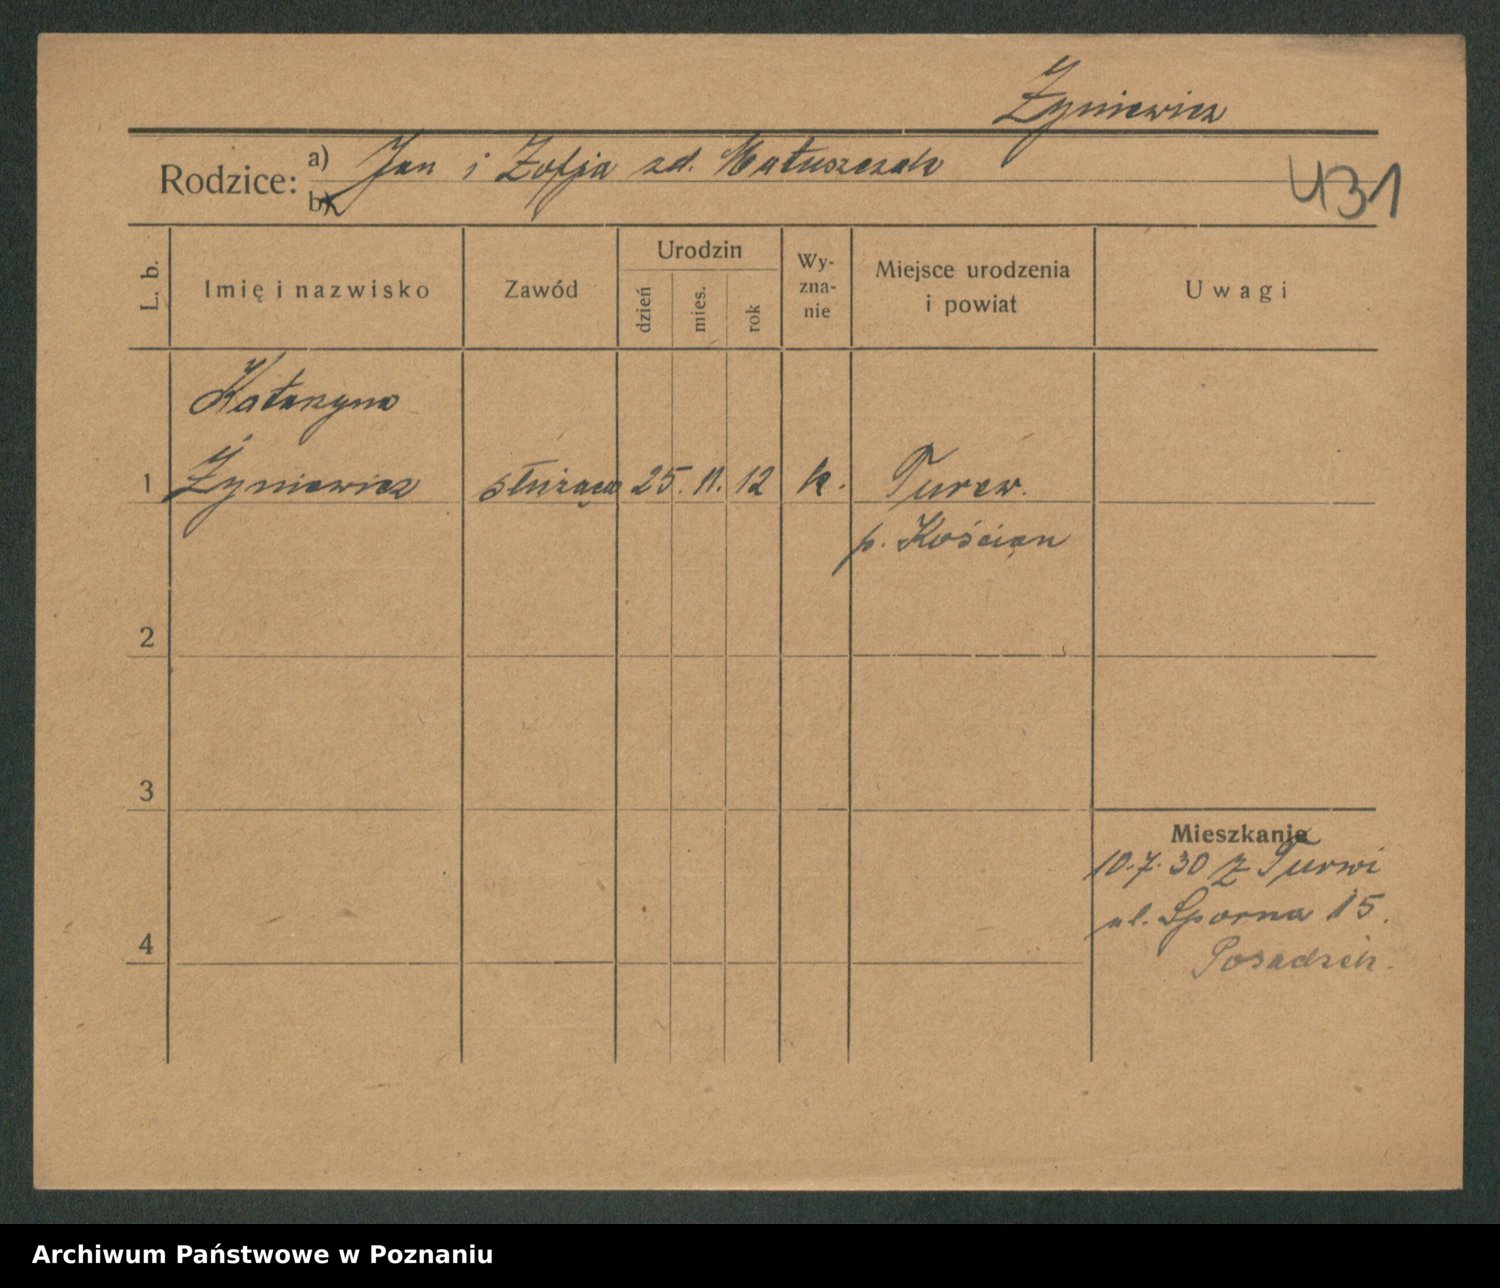 Żyniewicz
Rodzice: a) Jan i Zofja zd. Matuszczak
b)
431
L. b.
Imię i nazwisko
Zawód
Urodzin
dzień
mies.
rok
Wy-
zna-
nie
Miejsce urodzenia
i powiat
Uwagi
Katarzyna
1 Żyniewicz służąca 25. 11. 12 k. Turew.
p. Kościan
2
3
Mieszkanie
10.7.30 z Turwi
ul. Sporna 15.
4
Archiwum Państwowe w Poznaniu